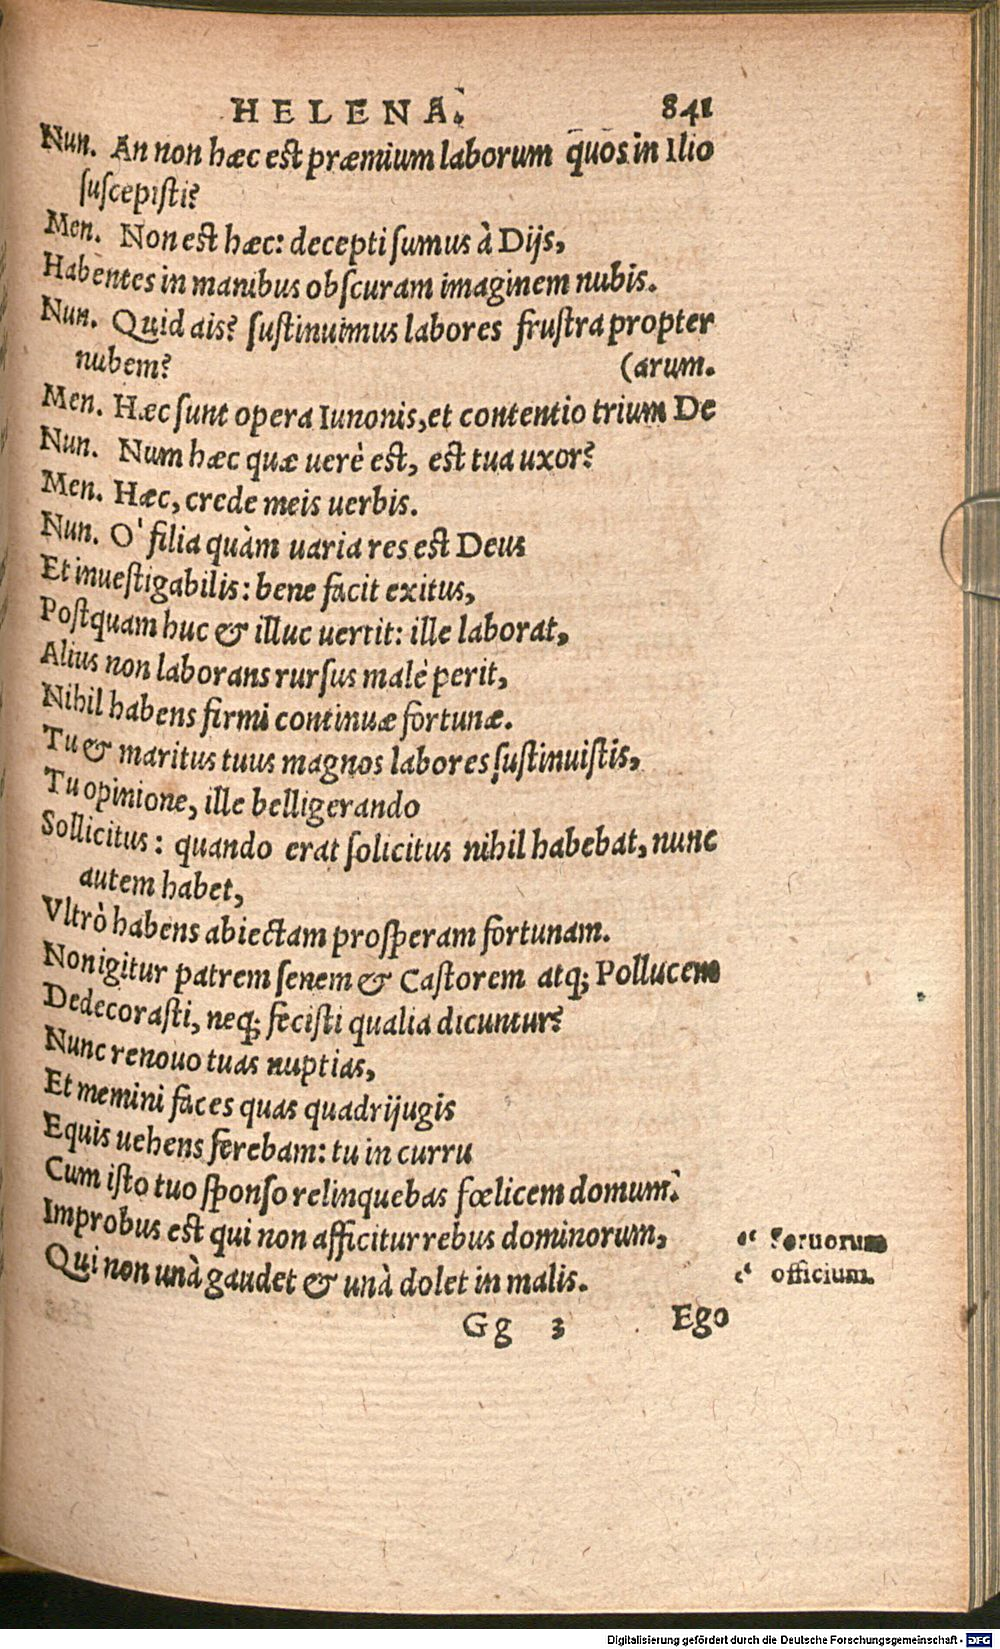 HELENA. 841
Nun. An non hæc est præmium laborum quos in Ilio
suscepisti?
Men. Non est hæc: decepti sumus à Dijs,
Habentes in manibus obscuram imaginem nubis.
Nun. Quid ais? sustinuimus labores frustra propter
nubem? (arum.
Men. Hæc sunt opera Iunonis, et contentio trium De
Nun. Num hæc quæ uerè est, est tua uxor?
Men. Hæc, crede meis uerbis.
Nun. O' filia quàm uaria res est Deus
Et inuestigabilis: bene facit exitus,
Postquam huc & illuc uertit: ille laborat,
Alius non laborans rursus malè perit,
Nihil habens firmi continuæ fortunæ.
Tu & maritus tuus magnos labores sustinuistis,
Tu opinione, ille belligerando
Sollicitus: quando erat solicitus nihil habebat, nunc
autem habet,
Vltrò habens abiectam prosperam fortunam.
Non igitur patrem senem & Castorem atq; Pollucem
Dedecorasti, neq; fecisti qualia dicuntur?
Nunc renouo tuas nuptias,
Et memini faces quas quadrijugis
Equis uehens ferebam: tu in curru
Cum isto tuo sponso relinquebas fœlicem domum.
Improbus est qui non afficitur rebus dominorum, “ Seruorum
Qui non unà gaudet & unà dolet in malis. “ officium.
Gg 3 Ego
Digitalisierung gefördert durch die Deutsche Forschungsgemeinschaft - DFG